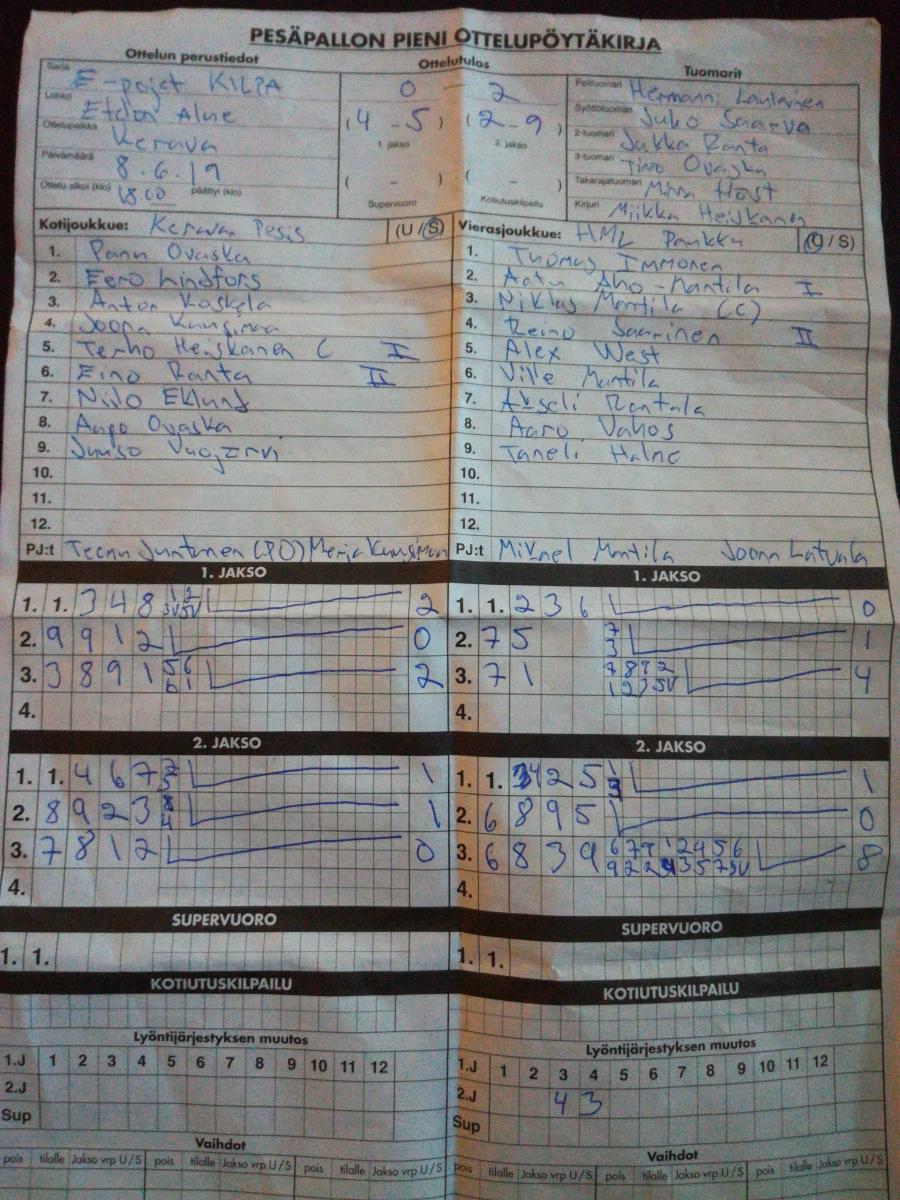 PESÄPALLON PIENI OTTELUPÖYTÄKIRJA
Ottelun perustiedot Ottelutulos Tuomarit
Sarja E-pojat KILPA
Lohko Etelän Alue
Ottelupaikka Kerava
Päivämäärä 8.6.19
Ottelu alkoi (klo) 18.00 päättyi (klo)
0 - 2
(4 - 5) (2 - 9)
1. jakso 2. jakso
( - ) ( - )
Supervuoro Kotiutuskilpailu
Pelituomari Hermanni Laulainen
Syöttötuomari Juho Saarva
2-tuomari Jukka Ranta
3-tuomari Timo Ovaska
Takarajatuomari Minna Höst
Kirjuri Miikka Heiskanen
Kotijoukkue: Keravan Pesis (U/S)
1. Panu Ovaska
2. Eero Lindfors
3. Anton Koskela
4. Joona Kuusimaa
5. Terho Heiskanen C I
6. Eino Ranta II
7. Niilo Eklund
8. Aapo Ovaska
9. Juuso Vuojärvi
10.
11.
12.
PJ:t Teemu Juntunen (PO) Merja Kuusimaa
Vierasjoukkue: HML Pankku (U/S)
1. Tuomas Immonen
2. Aatu Aho-Mantila I
3. Niklas Mantila (C)
4. Reino Saarinen II
5. Alex West
6. Ville Mantila
7. Akseli Rantala
8. Aaro Vahos
9. Taneli Halme
10.
11.
12.
PJ:t Mikael Mantila Joona Latvala
1. JAKSO
1. 1. 3 4 8 1 2 2
3V 5V
2. 9 9 1 2 0
3. 3 8 9 1 5 6 2
6 1
4.
1. JAKSO
1. 1. 2 3 6 0
2. 7 5 7 1
3
3. 7 1 7 8 9 2 4
1 2 3 5V
4.
2. JAKSO
1. 1. 4 6 7 2 1
3
2. 8 9 2 3 8 1
4
3. 7 8 1 2 0
4.
2. JAKSO
1. 1. 4 2 5 1 1
3
2. 6 8 9 5 0
3. 6 8 3 9 6 7 9 1 2 4 5 6 8
9 2 2 4 3 5 7 9V
4.
SUPERVUORO
1. 1.
SUPERVUORO
1. 1.
KOTIUTUSKILPAILU
KOTIUTUSKILPAILU
Lyöntijärjestyksen muutos
1.J 1 2 3 4 5 6 7 8 9 10 11 12
2.J
Sup
Lyöntijärjestyksen muutos
1.J 1 2 3 4 5 6 7 8 9 10 11 12
2.J 4 3
Sup
Vaihdot
pois tilalle Jakso vrp U/S pois tilalle Jakso vrp U/S pois tilalle Jakso vrp U/S
Vaihdot
pois tilalle Jakso vrp U/S pois tilalle Jakso vrp U/S pois tilalle Jakso vrp U/S